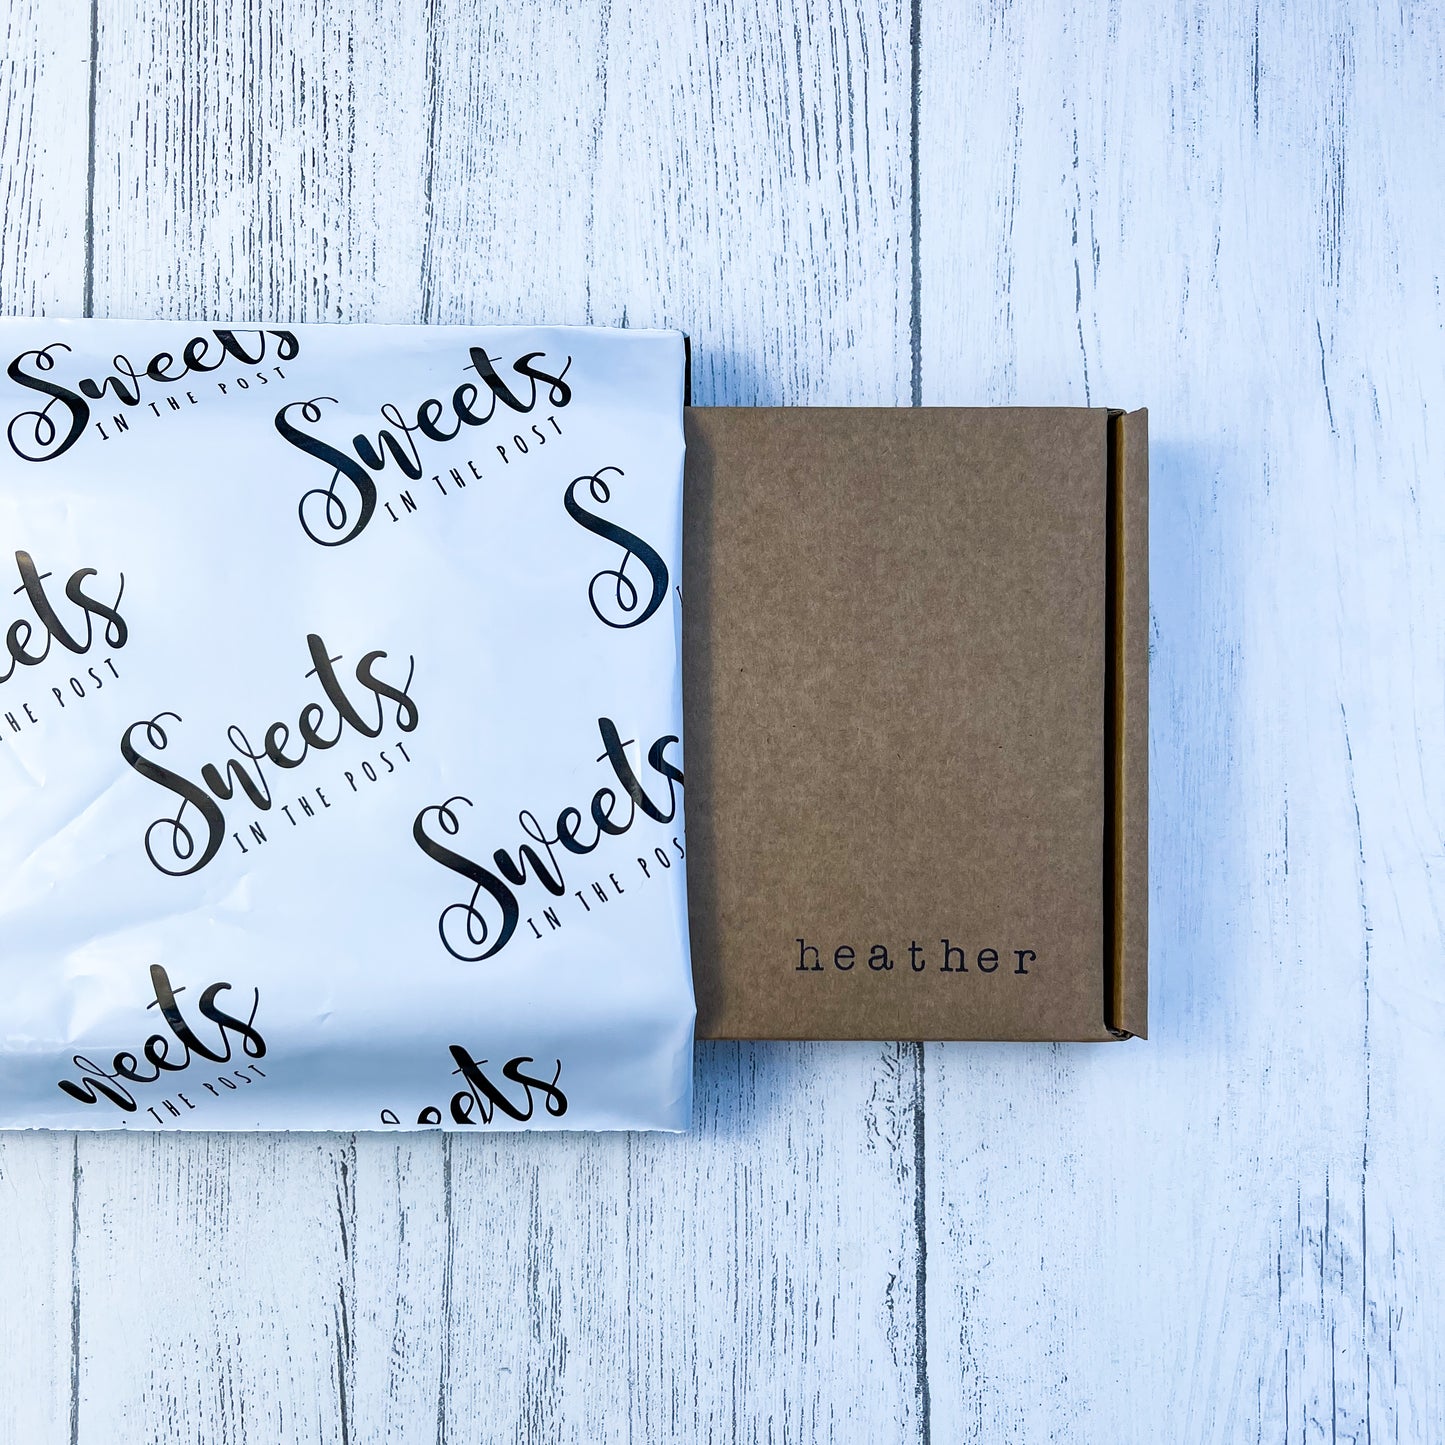 Sweets
IN THE POST
Sweets
IN THE POST
S
eets
THE POST
Sweets
IN THE POST
Sweets
IN THE POS
heather
weets
THE POST
eets